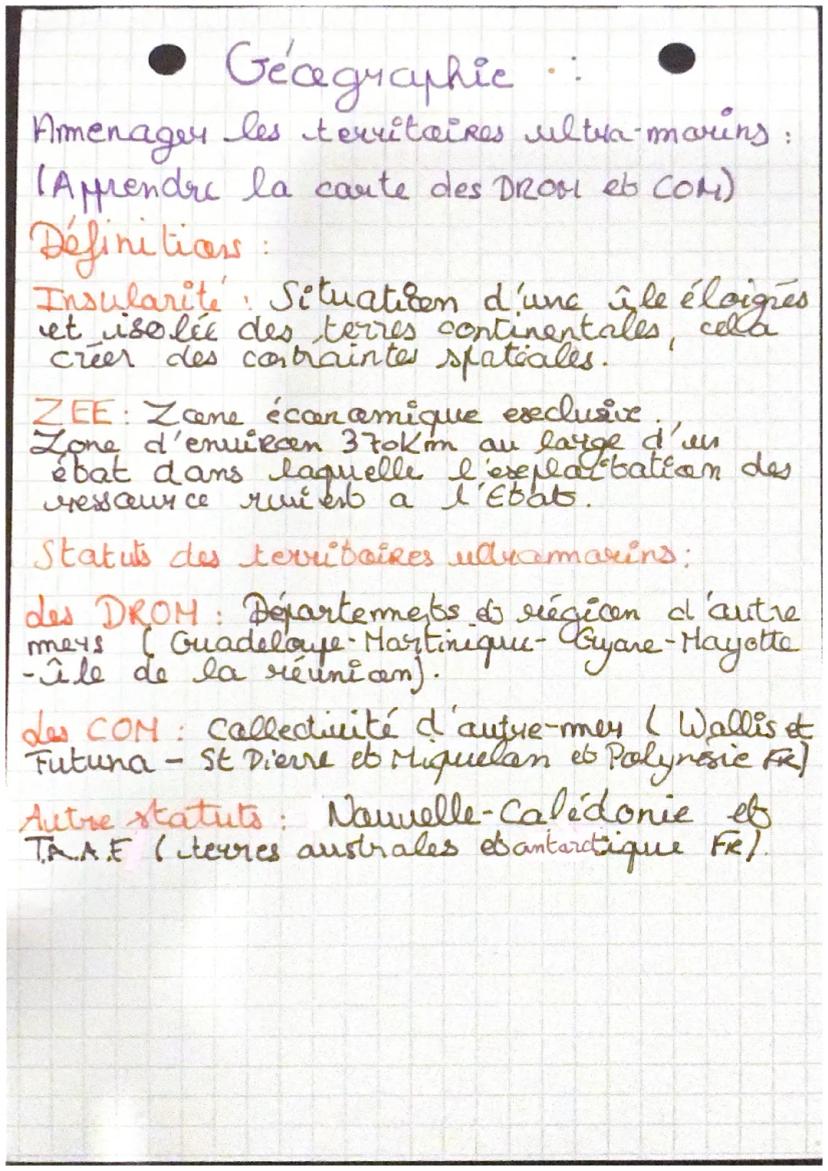 Géographie :
Aménager les territoires ultra-marins :
(Apprendre la carte des DROM et COM)
Définitions :
Insularité : Situation d'une île éloignés
et isolée des terres continentales, cela
créer des contraintes spatiales.
ZEE : Zone économique exclusive.
Zone d'environ 370Km au large d'un
état dans laquelle l'exploitation des
ressource revient a l'Etat.
Statuts des territoires ultramarins :
des DROM : Départements et région d'autre
mers (Guadeloupe - Martinique - Guyane - Mayotte
- île de la réunion).
des COM : Collectivité d'autre-mer (Wallis et
Futuna - St Pierre et Miquelon et Polynésie FR)
Autre statuts : Nouvelle-Calédonie et
T.A.A.F (terres australes et antarctique FR).